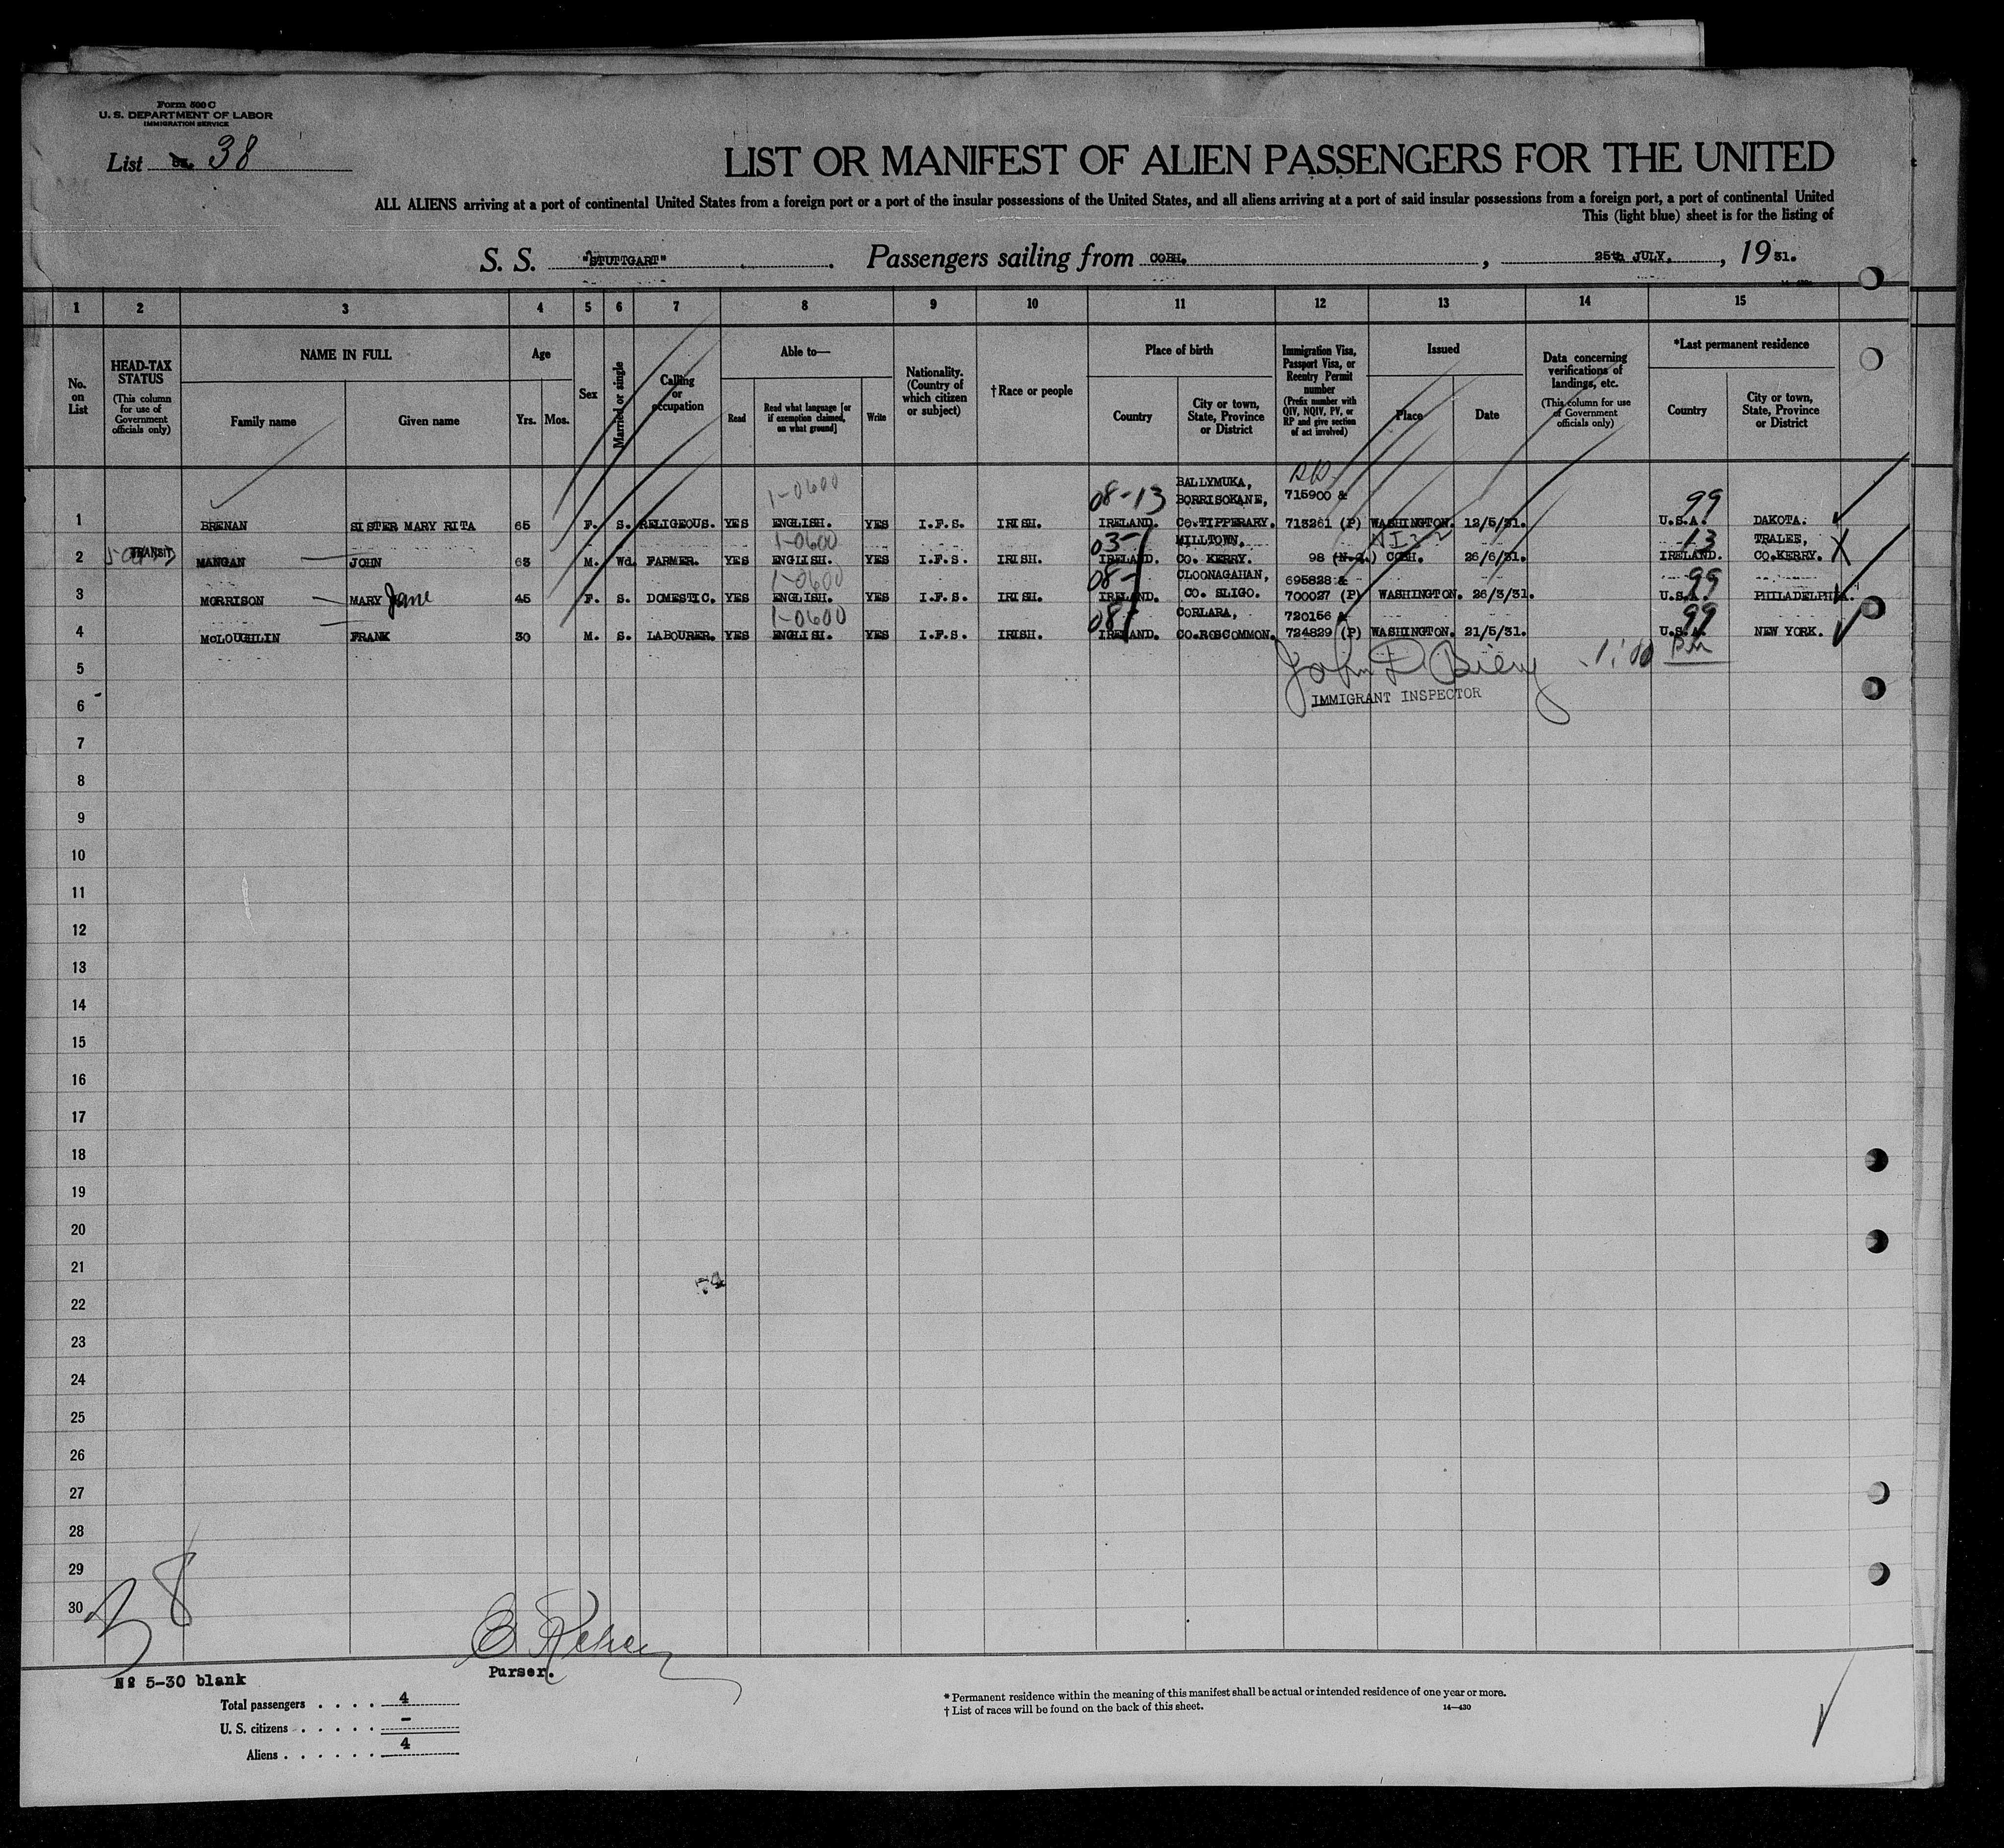 Form 500 C
U. S. DEPARTMENT OF LABOR
IMMIGRATION SERVICE
List 38
LIST OR MANIFEST OF ALIEN PASSENGERS FOR THE UNITED
ALL ALIENS arriving at a port of continental United States from a foreign port or a port of the insular possessions of the United States, and all aliens arriving at a port of said insular possessions from a foreign port, a port of continental United
This (light blue) sheet is for the listing of
S. S. "STUTTGART" Passengers sailing from COBH. , 25th JULY. , 19 31.
1 2 3 4 5 6 7 8 9 10 11 12 13 14 15
No. on List
HEAD-TAX STATUS
(This column for use of Government officials only)
NAME IN FULL
Family name
Given name
Age
Yrs. Mos.
Sex
Married or single
Calling or occupation
Able to—
Read
Read what language [or if exemption claimed, on what ground]
Write
Nationality. (Country of which citizen or subject)
† Race or people
Place of birth
Country
City or town, State, Province or District
Immigration Visa, Passport Visa, or Reentry Permit number
(Prefix number with QIV, NQIV, PV, or RP and give section of act involved)
Issued
Place
Date
Data concerning verifications of landings, etc.
(This column for use of Government officials only)
*Last permanent residence
Country
City or town, State, Province or District
1-0600 08-13 BALLYMUKA, BORRISOKANE, 715900 & 99
1 BRENAN SISTER MARY RITA 65 F. S. RELIGEOUS. YES ENGLISH. YES I.F.S. IRISH. IRELAND. CO.TIPPERARY. 713261 (P) WASHINGTON. 12/5/31. U.S.A. DAKOTA.
TRANSIT 1-0600 03- MILLTOWN, 13 TRALEE,
2 MANGAN JOHN 63 M. Wd. FARMER. YES ENGLISH. YES I.F.S. IRISH. IRELAND. CO. KERRY. 98 COBH. 26/6/31. IRELAND. CO.KERRY.
1-0600 08- CLOONAGAHAN, 695828 & 99
3 MORRISON MARY Jane 45 F. S. DOMESTIC. YES ENGLISH. YES I.F.S. IRISH. IRELAND. CO. SLIGO. 700027 (P) WASHINGTON. 26/3/31. U.S.A. PHILADELPHIA.
1-0600 08- CORLARA, 720156 & 99
4 McLOUGHLIN FRANK 30 M. S. LABOURER. YES ENGLISH. YES I.F.S. IRISH. IRELAND. CO.ROSCOMMON. 724829 (P) WASHINGTON. 21/5/31. U.S.A. NEW YORK.
5
IMMIGRANT INSPECTOR
6
7
8
9
10
11
12
13
14
15
16
17
18
19
20
21
22
23
24
25
26
27
28
29
30
38
Purser.
Nº 5-30 blank
Total passengers . . . . 4
U. S. citizens . . . . . -
Aliens . . . . . . 4
* Permanent residence within the meaning of this manifest shall be actual or intended residence of one year or more.
† List of races will be found on the back of this sheet.
14—430